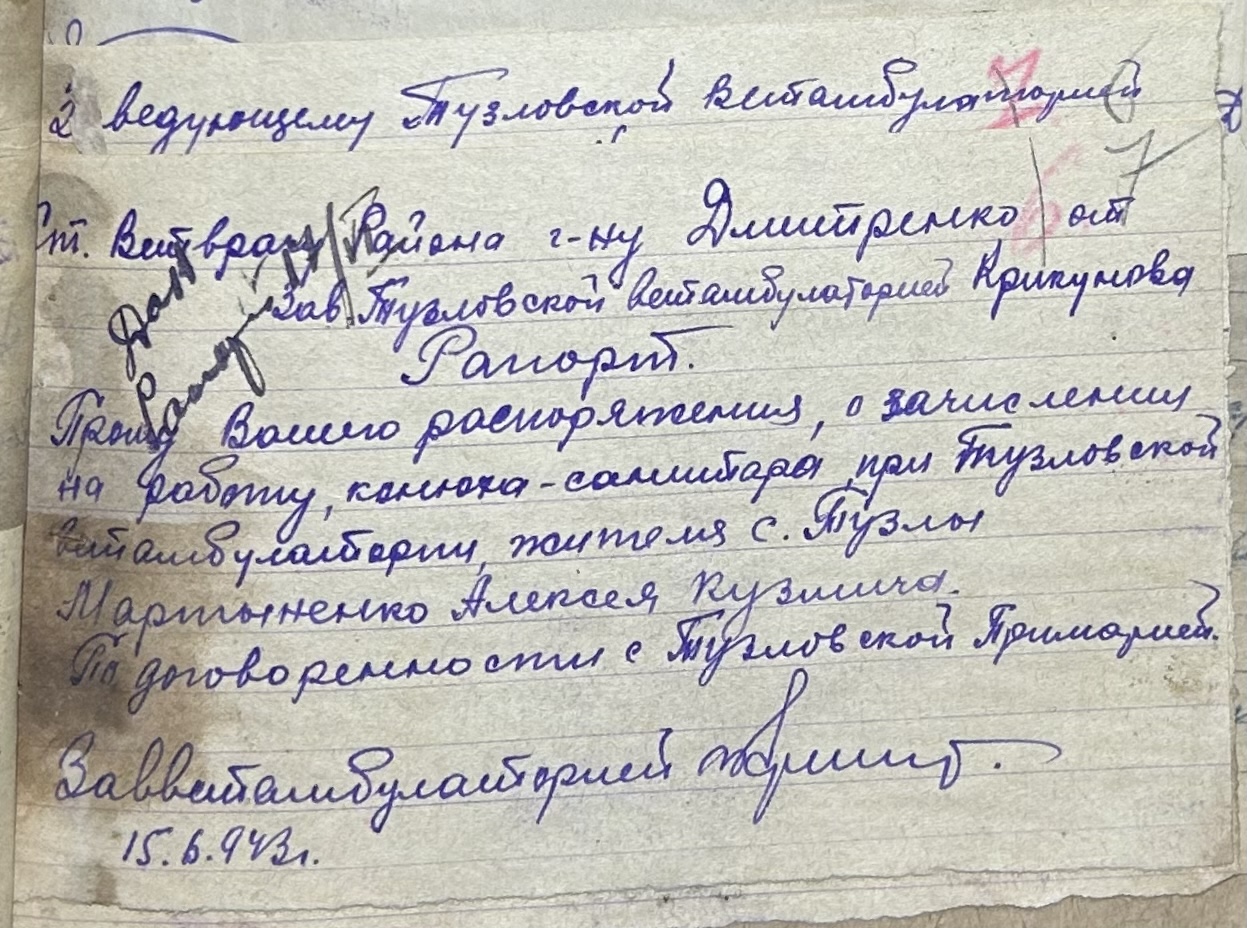 Заведующему Тузловской Ветамбулаторией
Ст. Ветврач Района г-ну Дмитренко от
Зав Тузловской ветамбулаторией Крикунова
Рапорт.
Прошу Вашего распоряжения, о зачислении
на работу, конюха-санитара, при Тузловской
ветамбулатории, жителя с. Тузлы
Мартыненко Алексея Кузмича.
По договоренности с Тузловской Примарией.
Завветамбулаторией
15.6.943г.
7